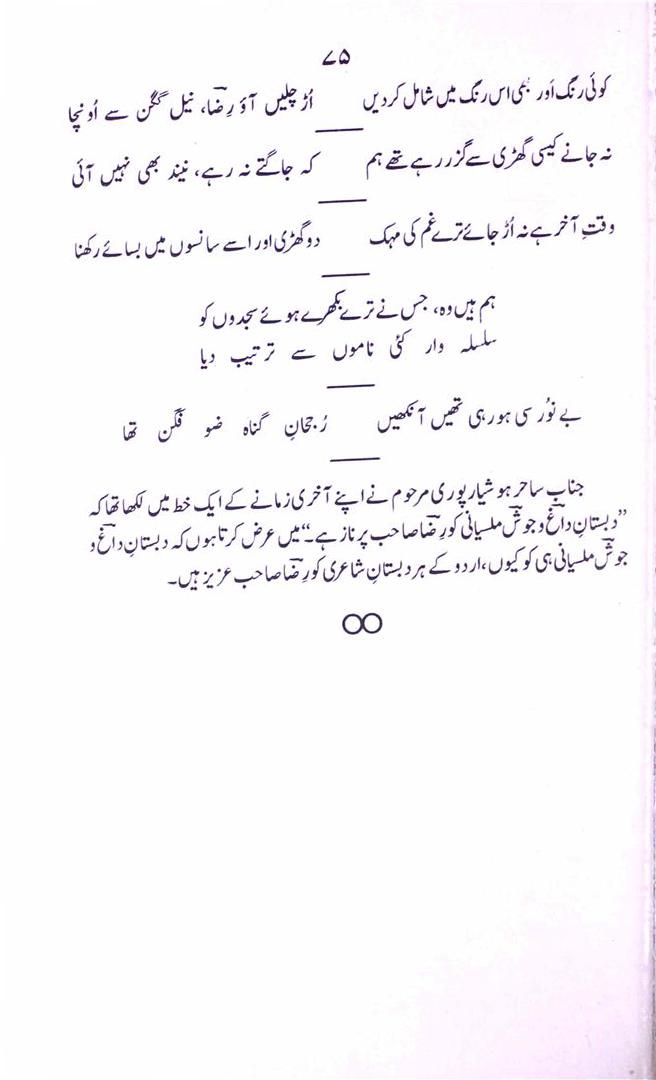 ۷۵
کوئی رنگ اَور بھی اس رنگ میں شامل کردیں اُڑ چلیں آؤ رِضاؔ، نیل گگن سے اُونچا
نہ جانے کیسی گھڑی سے گزر رہے تھے ہم کہ جاگتے نہ رہے، نیند بھی نہیں آئی
وقتِ آخر ہے نہ اُڑ جائے ترے غم کی مہک دو گھڑی اور اسے سانسوں میں بسائے رکھنا
ہم ہیں وہ، جس نے ترے بکھرے ہوئے سجدوں کو
سلسلہ وار کئی ناموں سے ترتیب دیا
بے نُور سی ہو رہی تھیں آنکھیں رُجحانِ گناہ ضو فگن تھا
جناب ساحر ہوشیارپوری مرحوم نے اپنے آخری زمانے کے ایک خط میں لکھا تھا کہ
”دبستانِ داغؔ و جوشؔ ملسیانی کو رِضاؔ صاحب پر ناز ہے۔“ میں عرض کرتا ہوں کہ دبستانِ داغؔ و
جوشؔ ملسیانی ہی کو کیوں، اردو کے ہر دبستانِ شاعری کو رِضاؔ صاحب عزیز ہیں۔